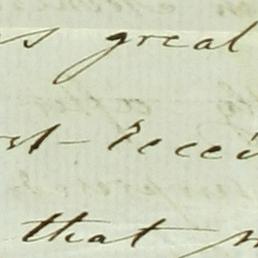 s great
st recei
that